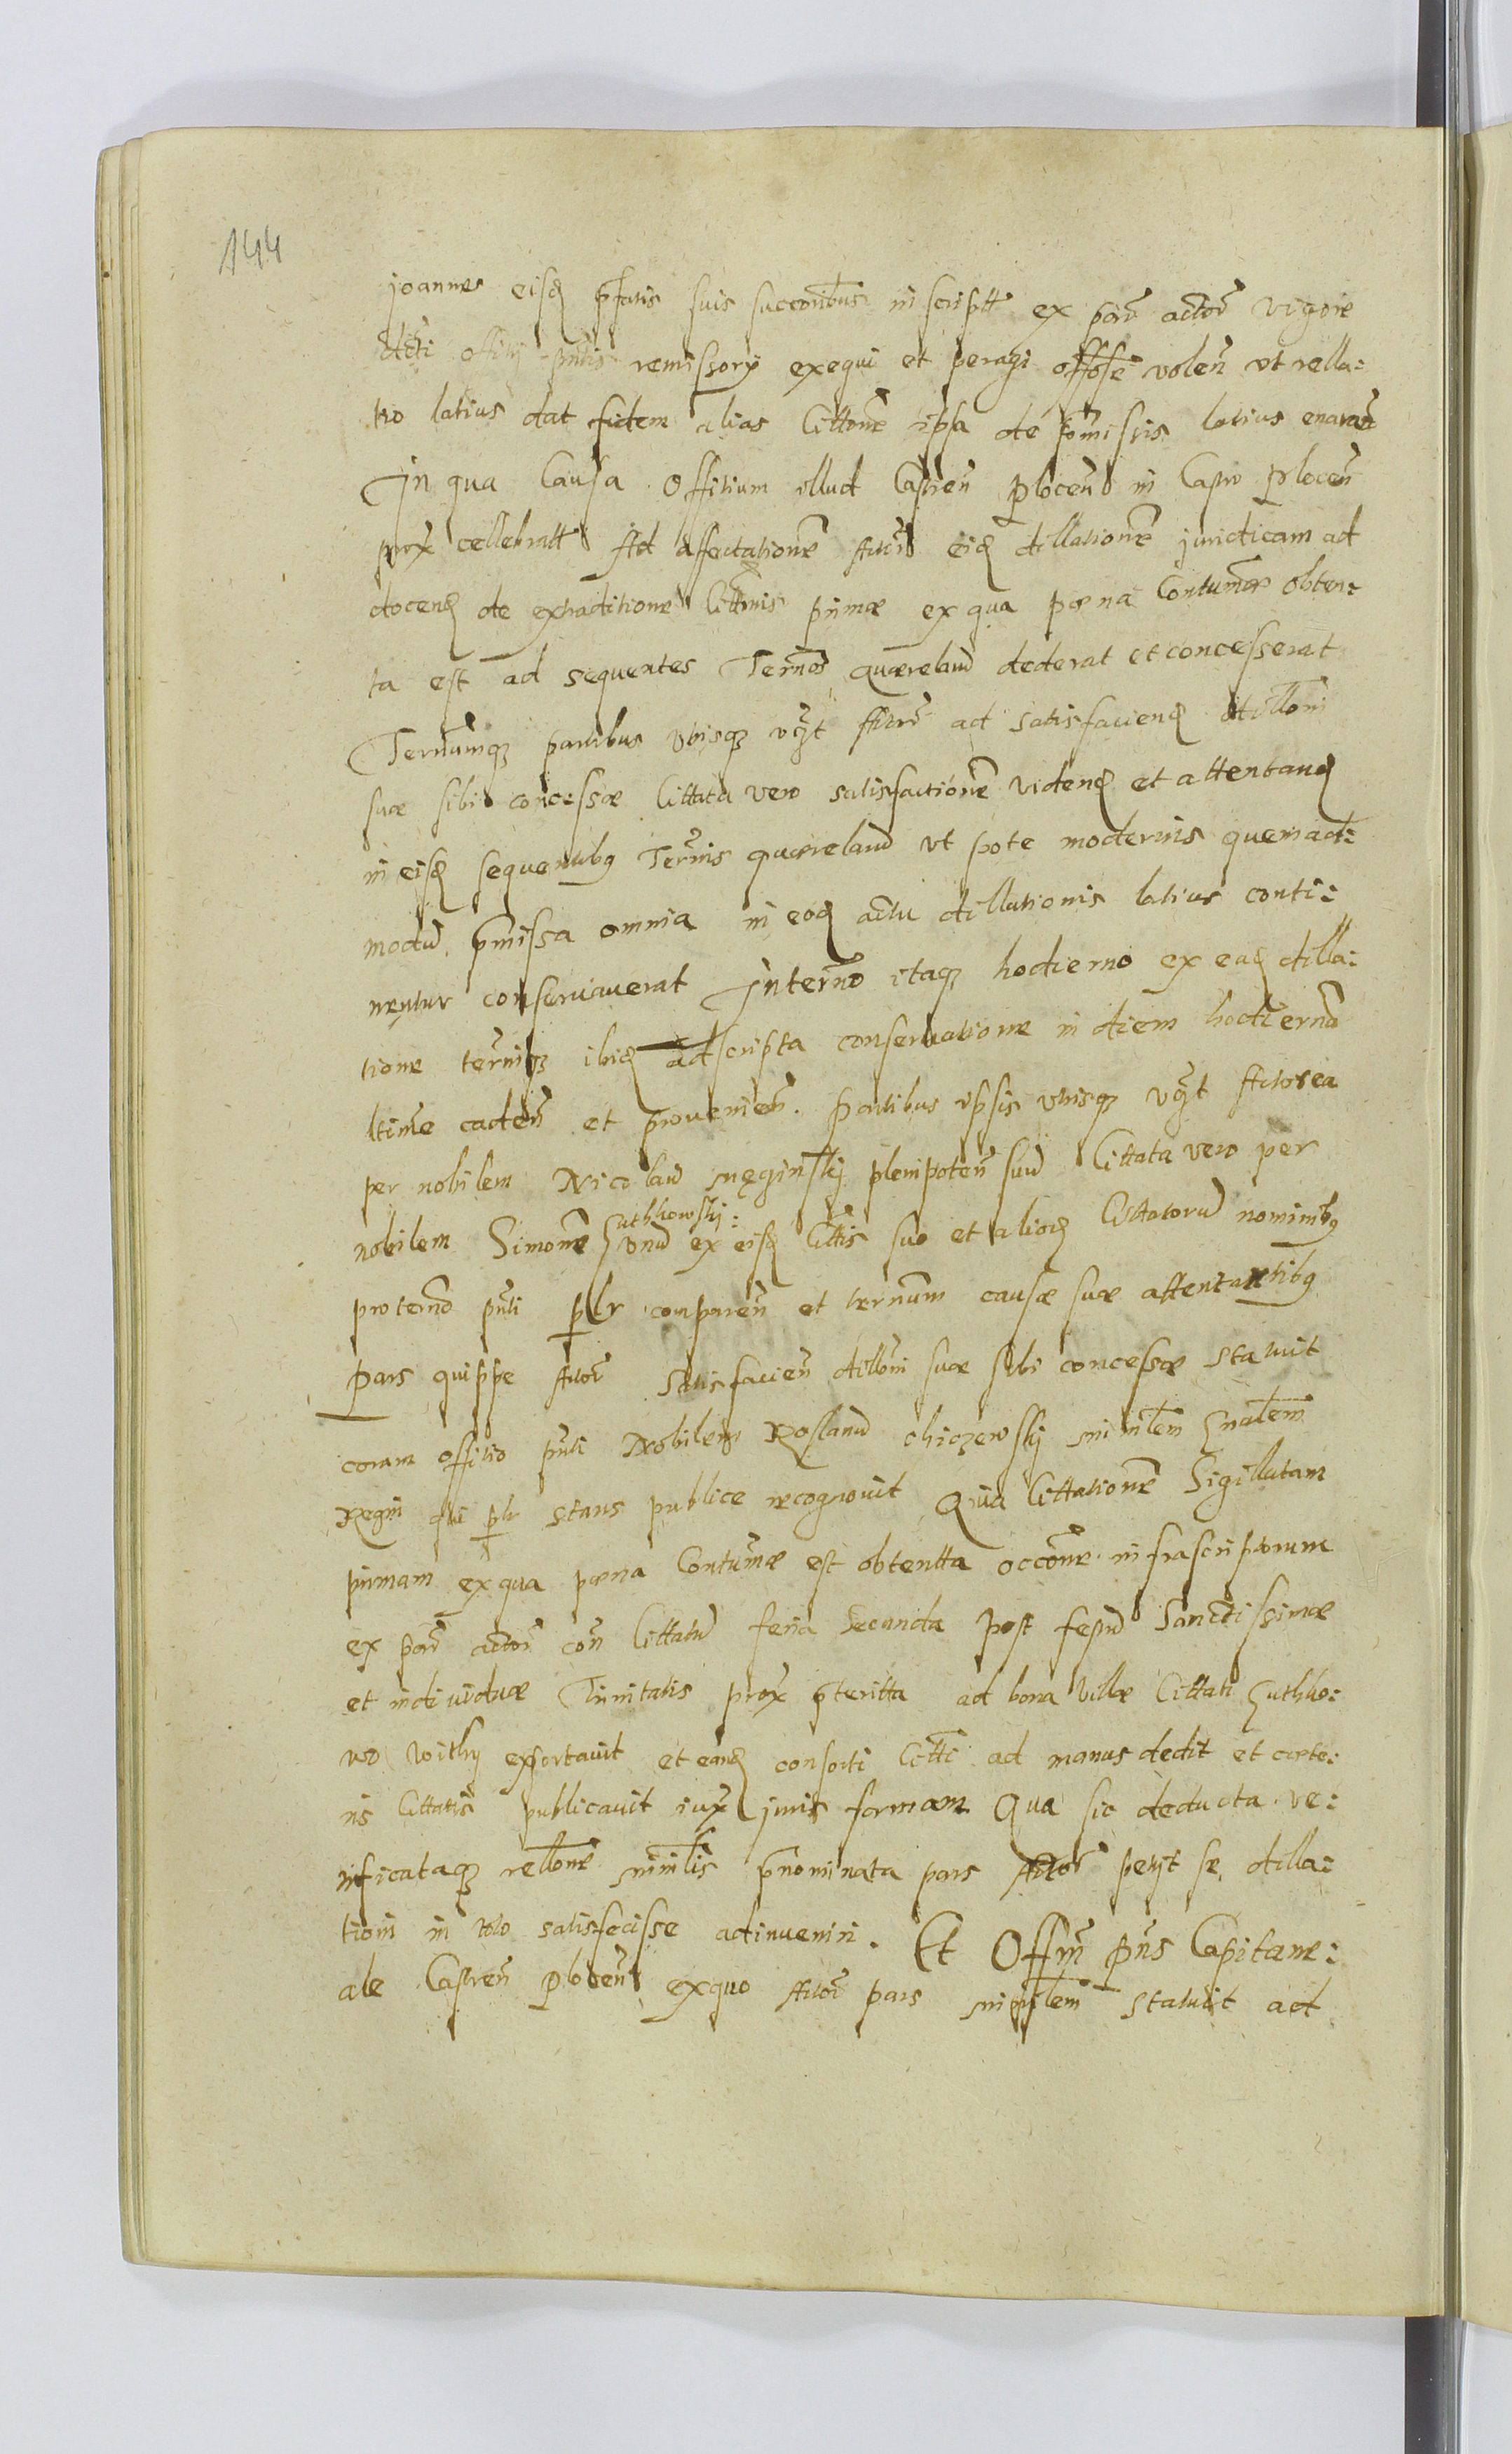 144
joannes eisd pfatis suis successoribus inscript ex parte actor vigore
dicti offitij pntis remissorij exequi et peragi volen vt rella:
tio latius dat fidem alias littone ipsa de pmissis latius enarat
In qua Causa Offitium illud Castren Plocen in Castro Plocen
prox cellebratt Ad affectatione Actor eid dillatione juridicam ad
docend de extraditione littonis primæ ex qua pœna Contumæ obten:
ta est ad sequentes Ternos quærelaru dederat et concesserat
Ternumq partibus vtrisq vqzt Actor ad satisfaciend dilloni
suæ sibi concessæ Cittata vero satisfactione vidend et attentand
in eisd sequentibq Ternis quærelaru vt pote modernis quemad:
modu pmissa omnia in eod actu dillationis latius conti:
nentur conservauerat In terno itaq hodierno ex ead dilla:
tione terniq ibid adscripta conservatione in diem hodierna
ltime caden et prouenien. Partibus ipsis vtrisq vqzt Actorea
per nobilem Nicolau plenipoten suu Cittata vero per
nobilem Simone Suthkowski: vnu ex eisd Cittis suo et aliord Cittatoru nominibq
pro terno pnti plr comparen et ternum causæ suæ attentantibq
Pars quippe Actor satisfacien dilloni suæ sibi concessæ statuit
coram offitio pnti Nobilem chiczewskij minrlem Gnalem
Regni qui plr stans publice recognouit Quia Cittatione Sigillatam
primam ex qua pœna Contumæ est obtentta occone infrascriptorum
ex parte actor con Cittatu feria secunda post festu Sanctissimæ
et indiuiduæ Trinitatis prox pteritta ad bona villæ Cittati Suthko:
wo portauit et eand consorti Citti ad manus dedit et cæte:
ris Cittatis publicauit iux juris formam Qua sic deducta ve:
rificataq rellone minrlis pnominata pars Actor petijt se dilla:
tioni in toto satisfecisse adinueniri. Et Offm pns Capitane:
ale Castren Plocen exquo Actor pars minrlem statuit ad